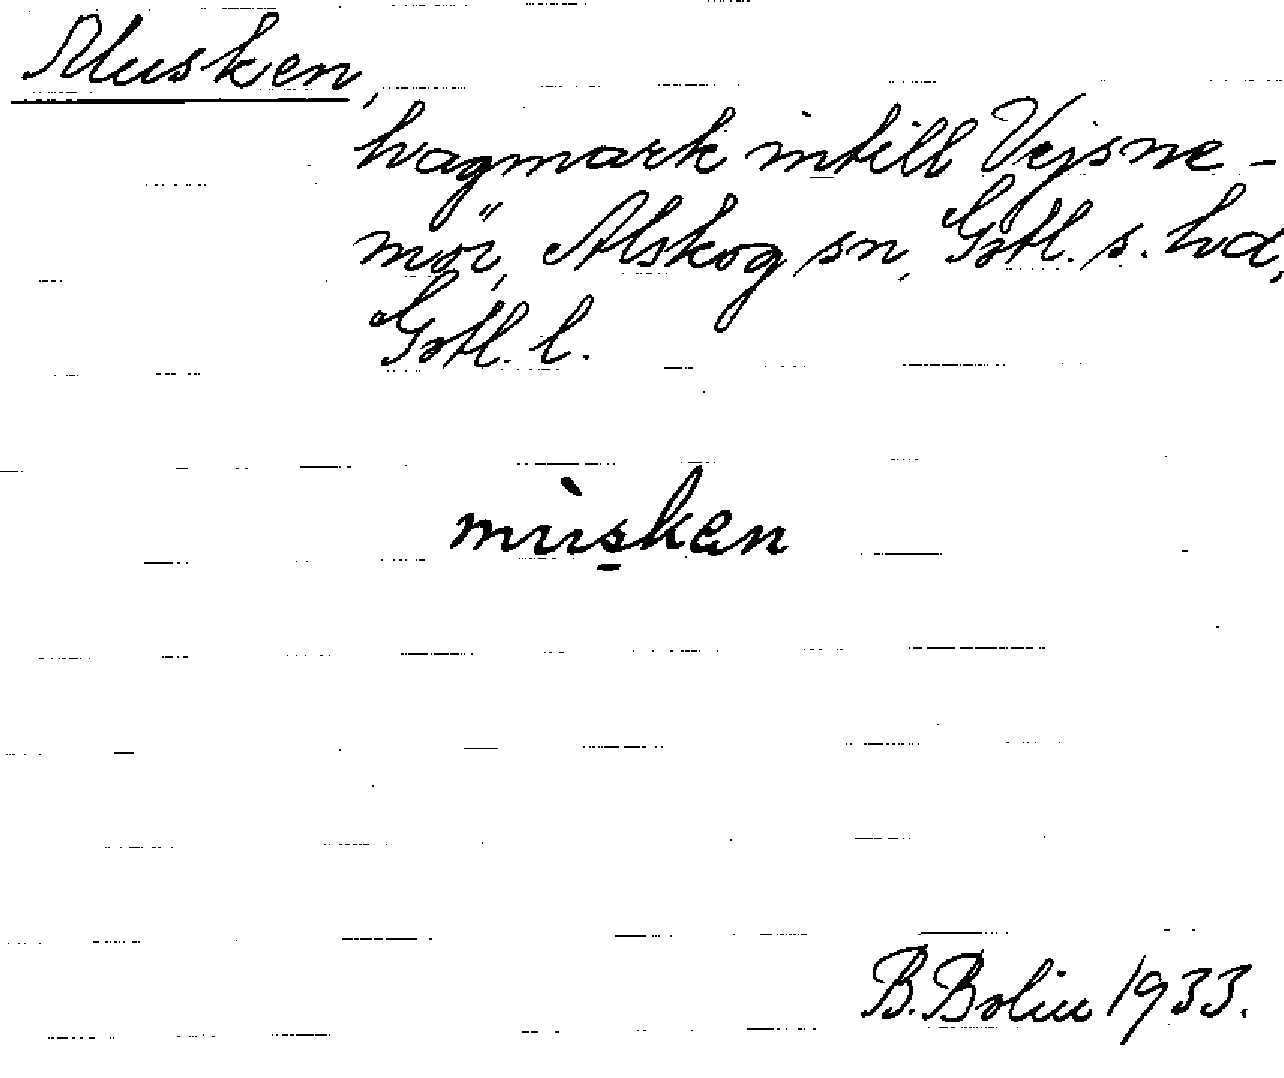 Musken,
hagmark intill Vejsne-
mör, Alskog sn, Gotl. s. hd,
Gotl. l.
mùsken
B. Bolin 1933.